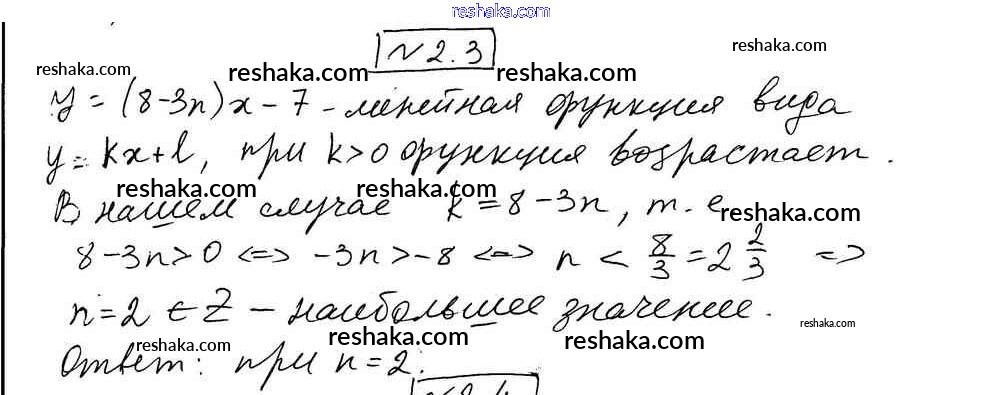 reshaka.com
№ 2.3
reshaka.com
reshaka.com reshaka.com reshaka.com
y = (8-3n)x - 7 - линейная функция вида
y = kx+l, при k>0 функция возрастает.
reshaka.com reshaka.com
В нашем случае k = 8-3n, т. е
reshaka.com
8-3n>0 <=> -3n>-8 <=> n < 8/3 = 2 2/3 =>
n=2 ∈ Z - наибольшее значение.
reshaka.com reshaka.com reshaka.com reshaka.com
Ответ: при n=2.